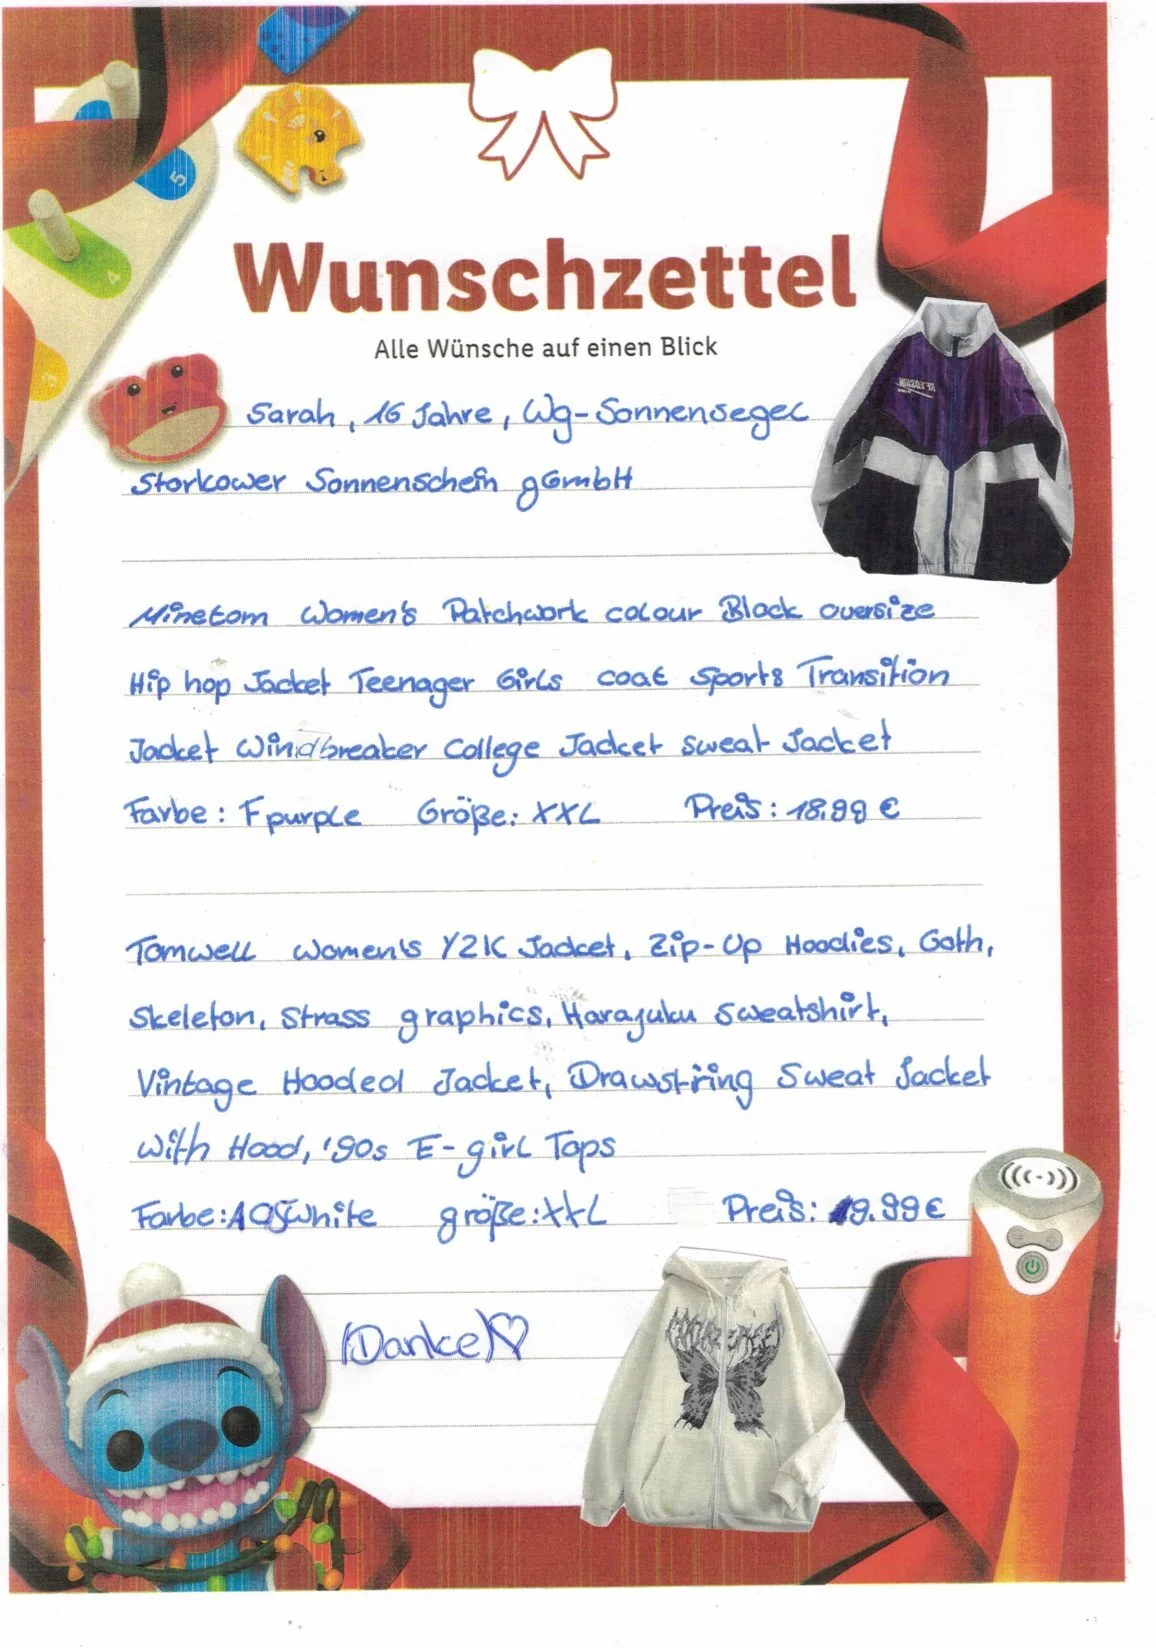 Wunschzettel
Alle Wünsche auf einen Blick
Sarah, 16 Jahre, Wg-Sonnensegel
Storkower Sonnenschein gGmbH
Minetom Women's Patchwork colour Block oversize
Hip hop Jacket Teenager Girls coat Sports Transition
Jacket Windbreaker College Jacket sweat Jacket
Farbe: F purple Größe: XXL Preis: 18,99 €
Tomwell Women's Y2K Jacket, Zip-Up Hoodies, Goth,
Skeleton, Strass graphics, Harajuku Sweatshirt,
Vintage Hooded Jacket, Drawstring Sweat Jacket
with Hood, '90s E-girl Tops
Farbe: White größe: XXL Preis: 19.99 €
(Danke)♡
5
4
3